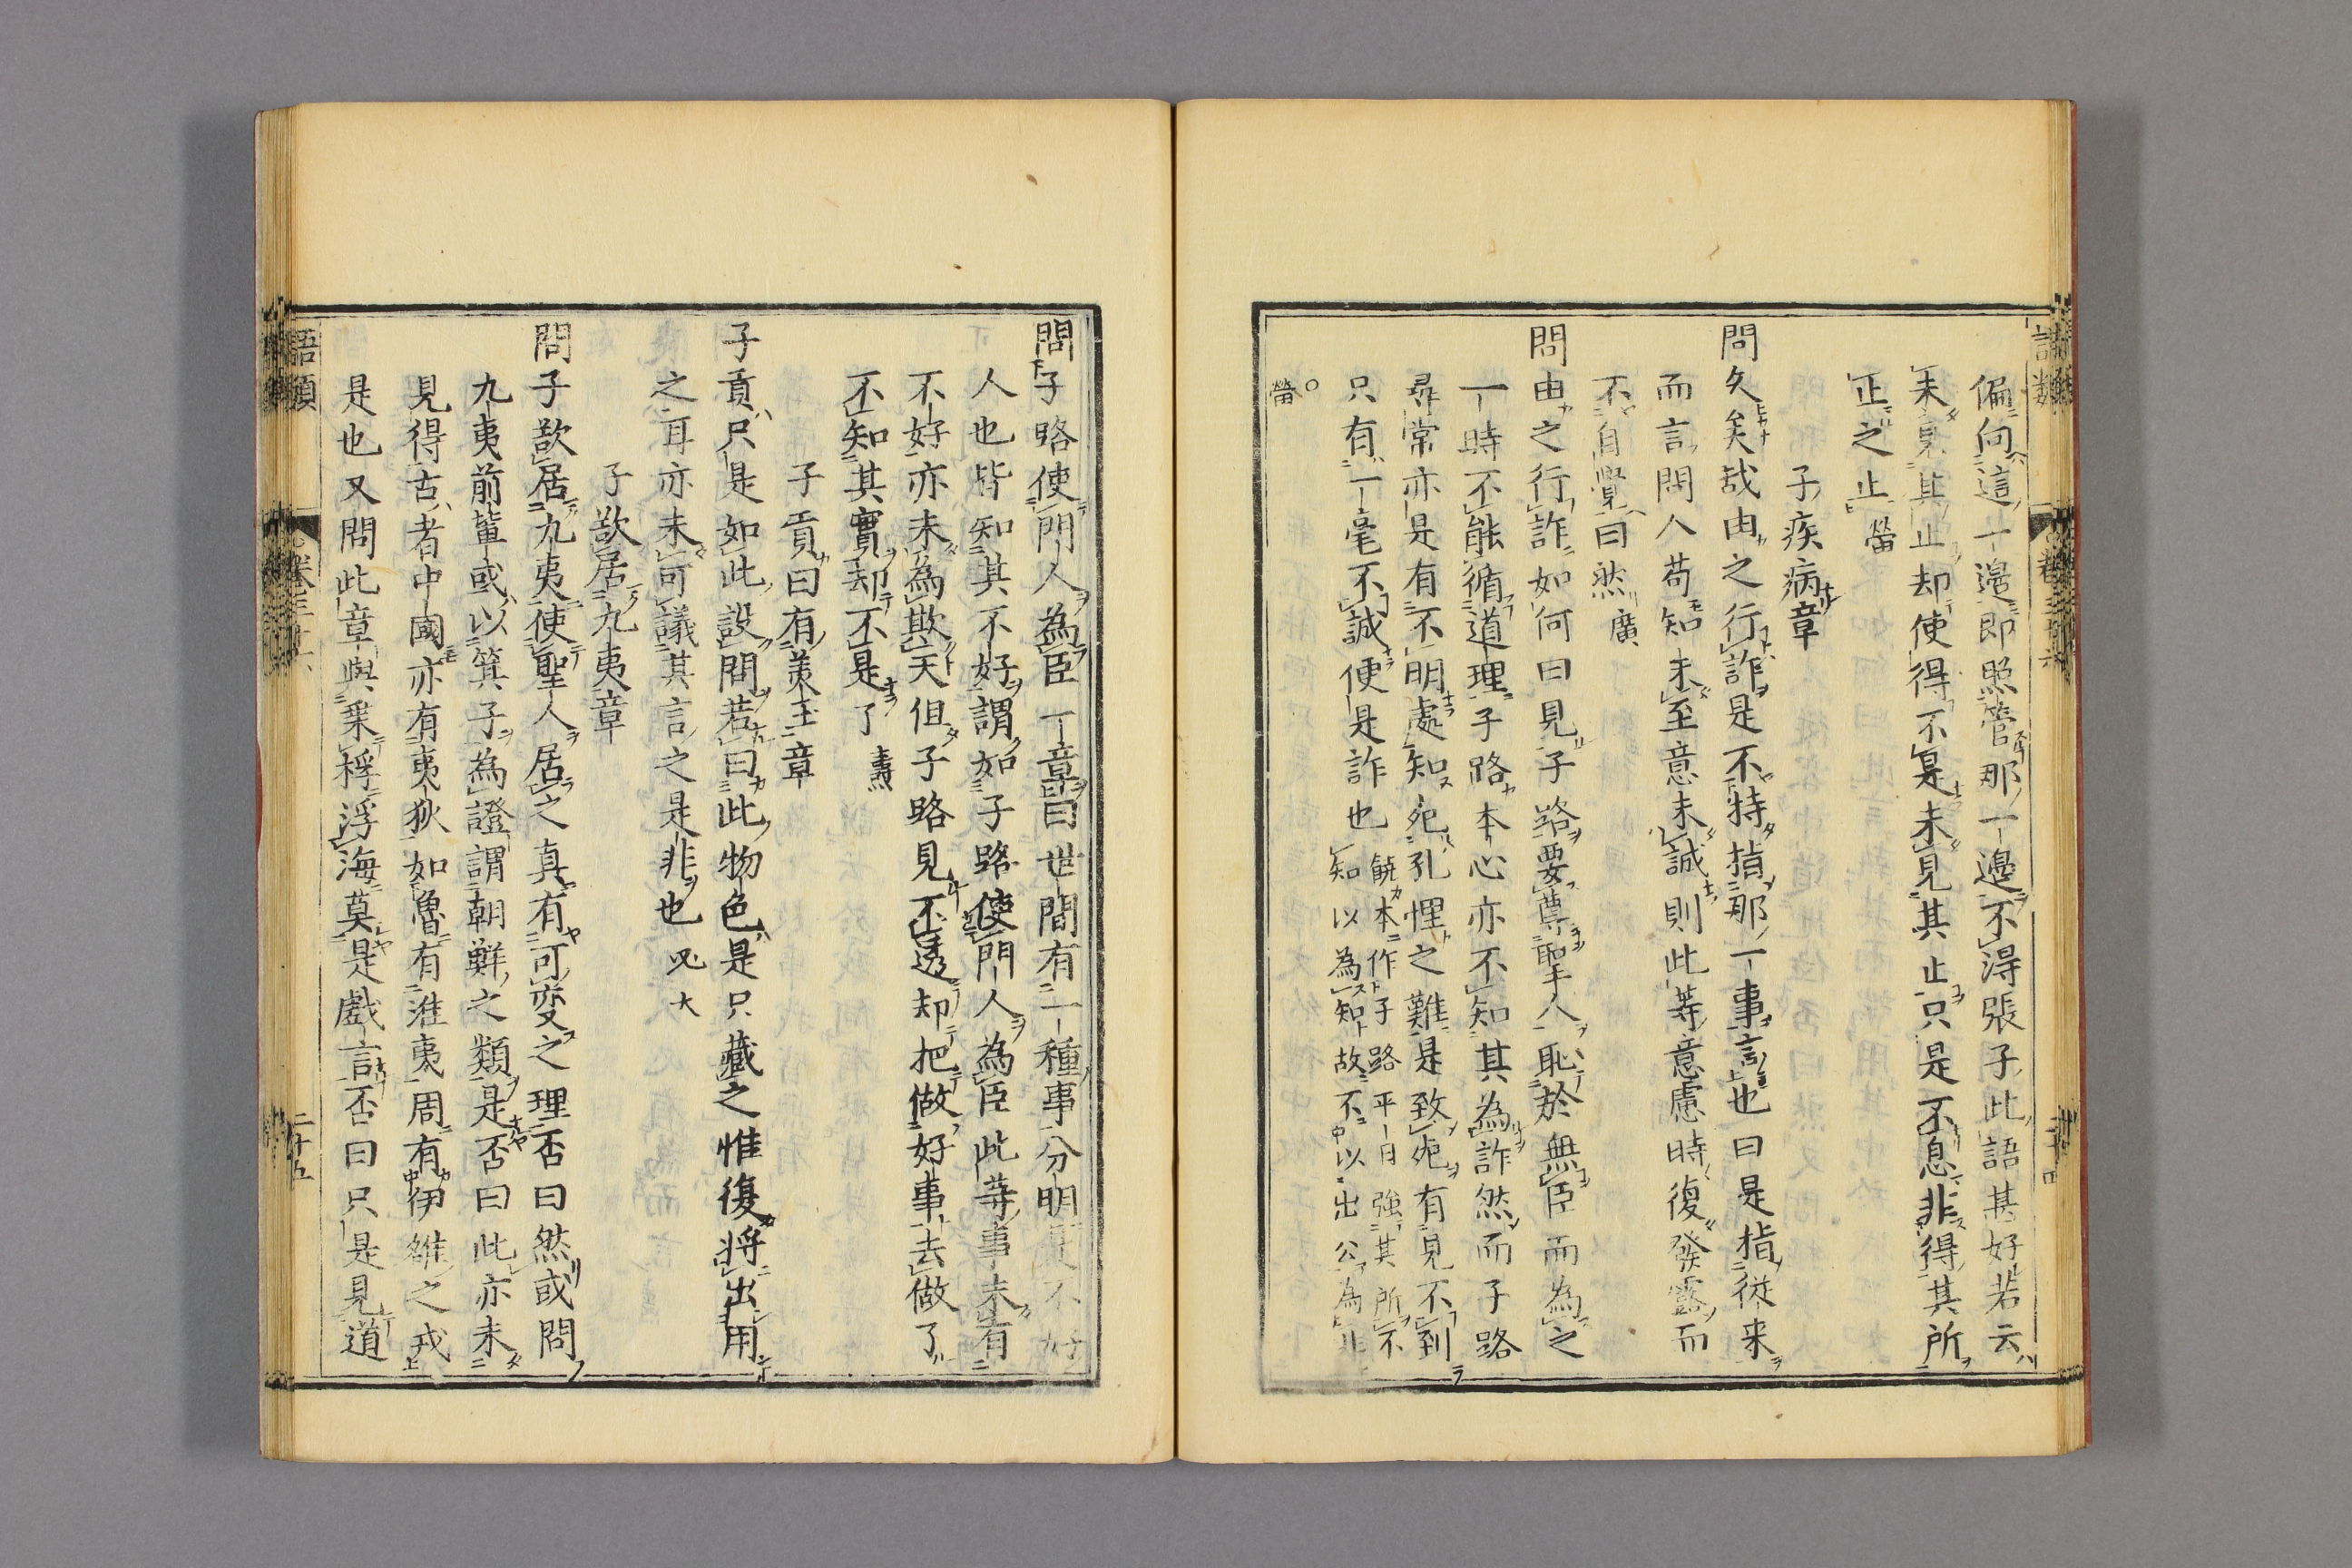 偏向這一邊即照管那一邊不得張子此語甚好若云
未見其止却使得不是未見其止只是不息非得其所
止之止 㽦
子疾病章
問久矣哉由之行詐是不特指那一事言也曰是指從来
而言問人苟知未至意未誠則此等意慮時復發露而
不自覺曰然 廣
問由之行詐如何曰見子路要尊聖人恥於無臣而為之
一時不能循道理子路本心亦不知其為詐然而子路
尋常亦是有不明處知死孔悝之難是致死有見不到
只有一毫不誠便是詐也 饒本作子路平日強其所不
知以為知故不以出公為非
○
㽦
問子路使門人為臣一章曰世間有一種事分明是不好
人也皆知其不好謂如子路使門人為臣此等事未有
不好亦未為欺天但子路見不透却把做好事去做了
不知其實却不是了 燾
子貢曰有美玉章
子貢只是如此設問若曰此物色是只藏之惟復将出用
之耳亦未可議其言之是非也 必大
子欲居九夷章
問子欲居九夷使聖人居之真有可変之理否曰然或問
九夷前輩或以箕子為證謂朝鮮之類是否曰此亦未
見得古者中國亦有夷狄如魯有淮夷周有伊雒之戎
是也又問此章與乗桴浮海莫是戲言否曰只是見道
語類
卷三十六
二十五